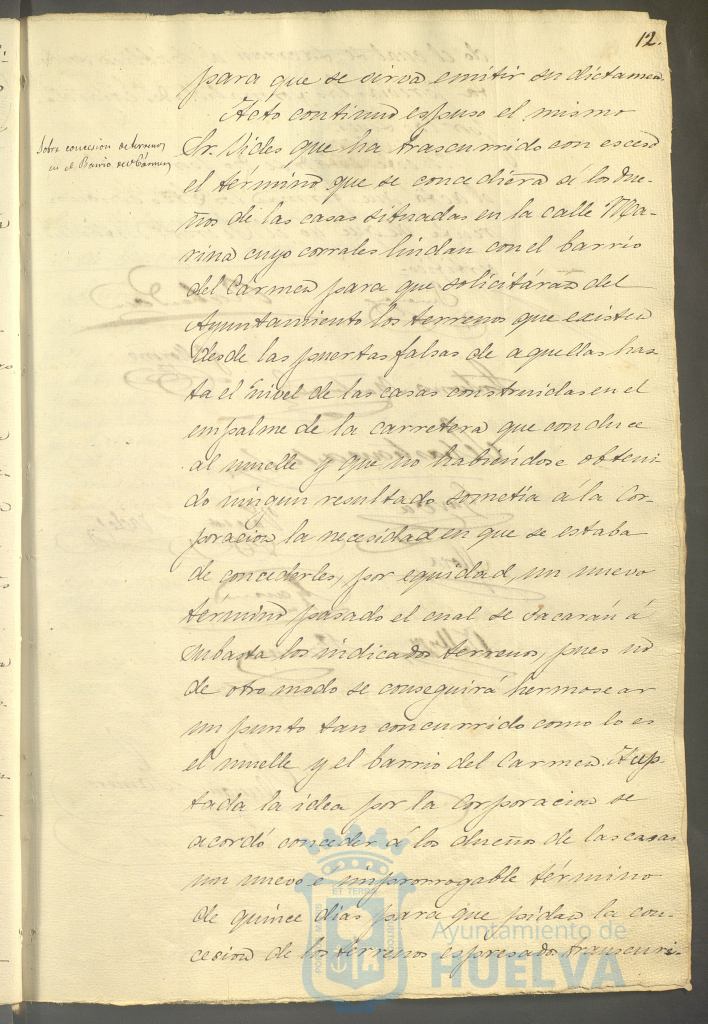 12.
para que se sirva emitir su dictamen.
Acto continuo espuso el mismo
Sobre concesion de terrenos
en el Barrio del Cármen
Sr. Vides que ha trascurrido con esceso
el término que se concediera á los due-
ños de las casas situadas en la calle Ma-
rina cuyo corrales lindan con el barrio
del Cármen para que solicitáran del
Ayuntamiento los terrenos que existen
desde las puertas falsas de aquellas has
ta el nivel de las casas construidas en el
empalme de la carretera que conduce
al muelle y que no habiéndose obteni-
do ningun resultado sometia á la Cor-
poracion la necesidad en que se estaba
de concederles, por equidad, un nuevo
término pasado el cual se sacarán á
subasta los indicados terrenos, pues no
de otro modo se conseguirá hermosear
un punto tan concurrido como lo es
el muelle y el barrio del Carmen. Acep-
tada la idea por la Corporacion se
acordó conceder á los dueños de las casas
un nuevo é improrrogable término
de quince dias para que pidan la con-
cesion de los terrenos espresados transcurri-
Ayuntamiento de
HUELVA